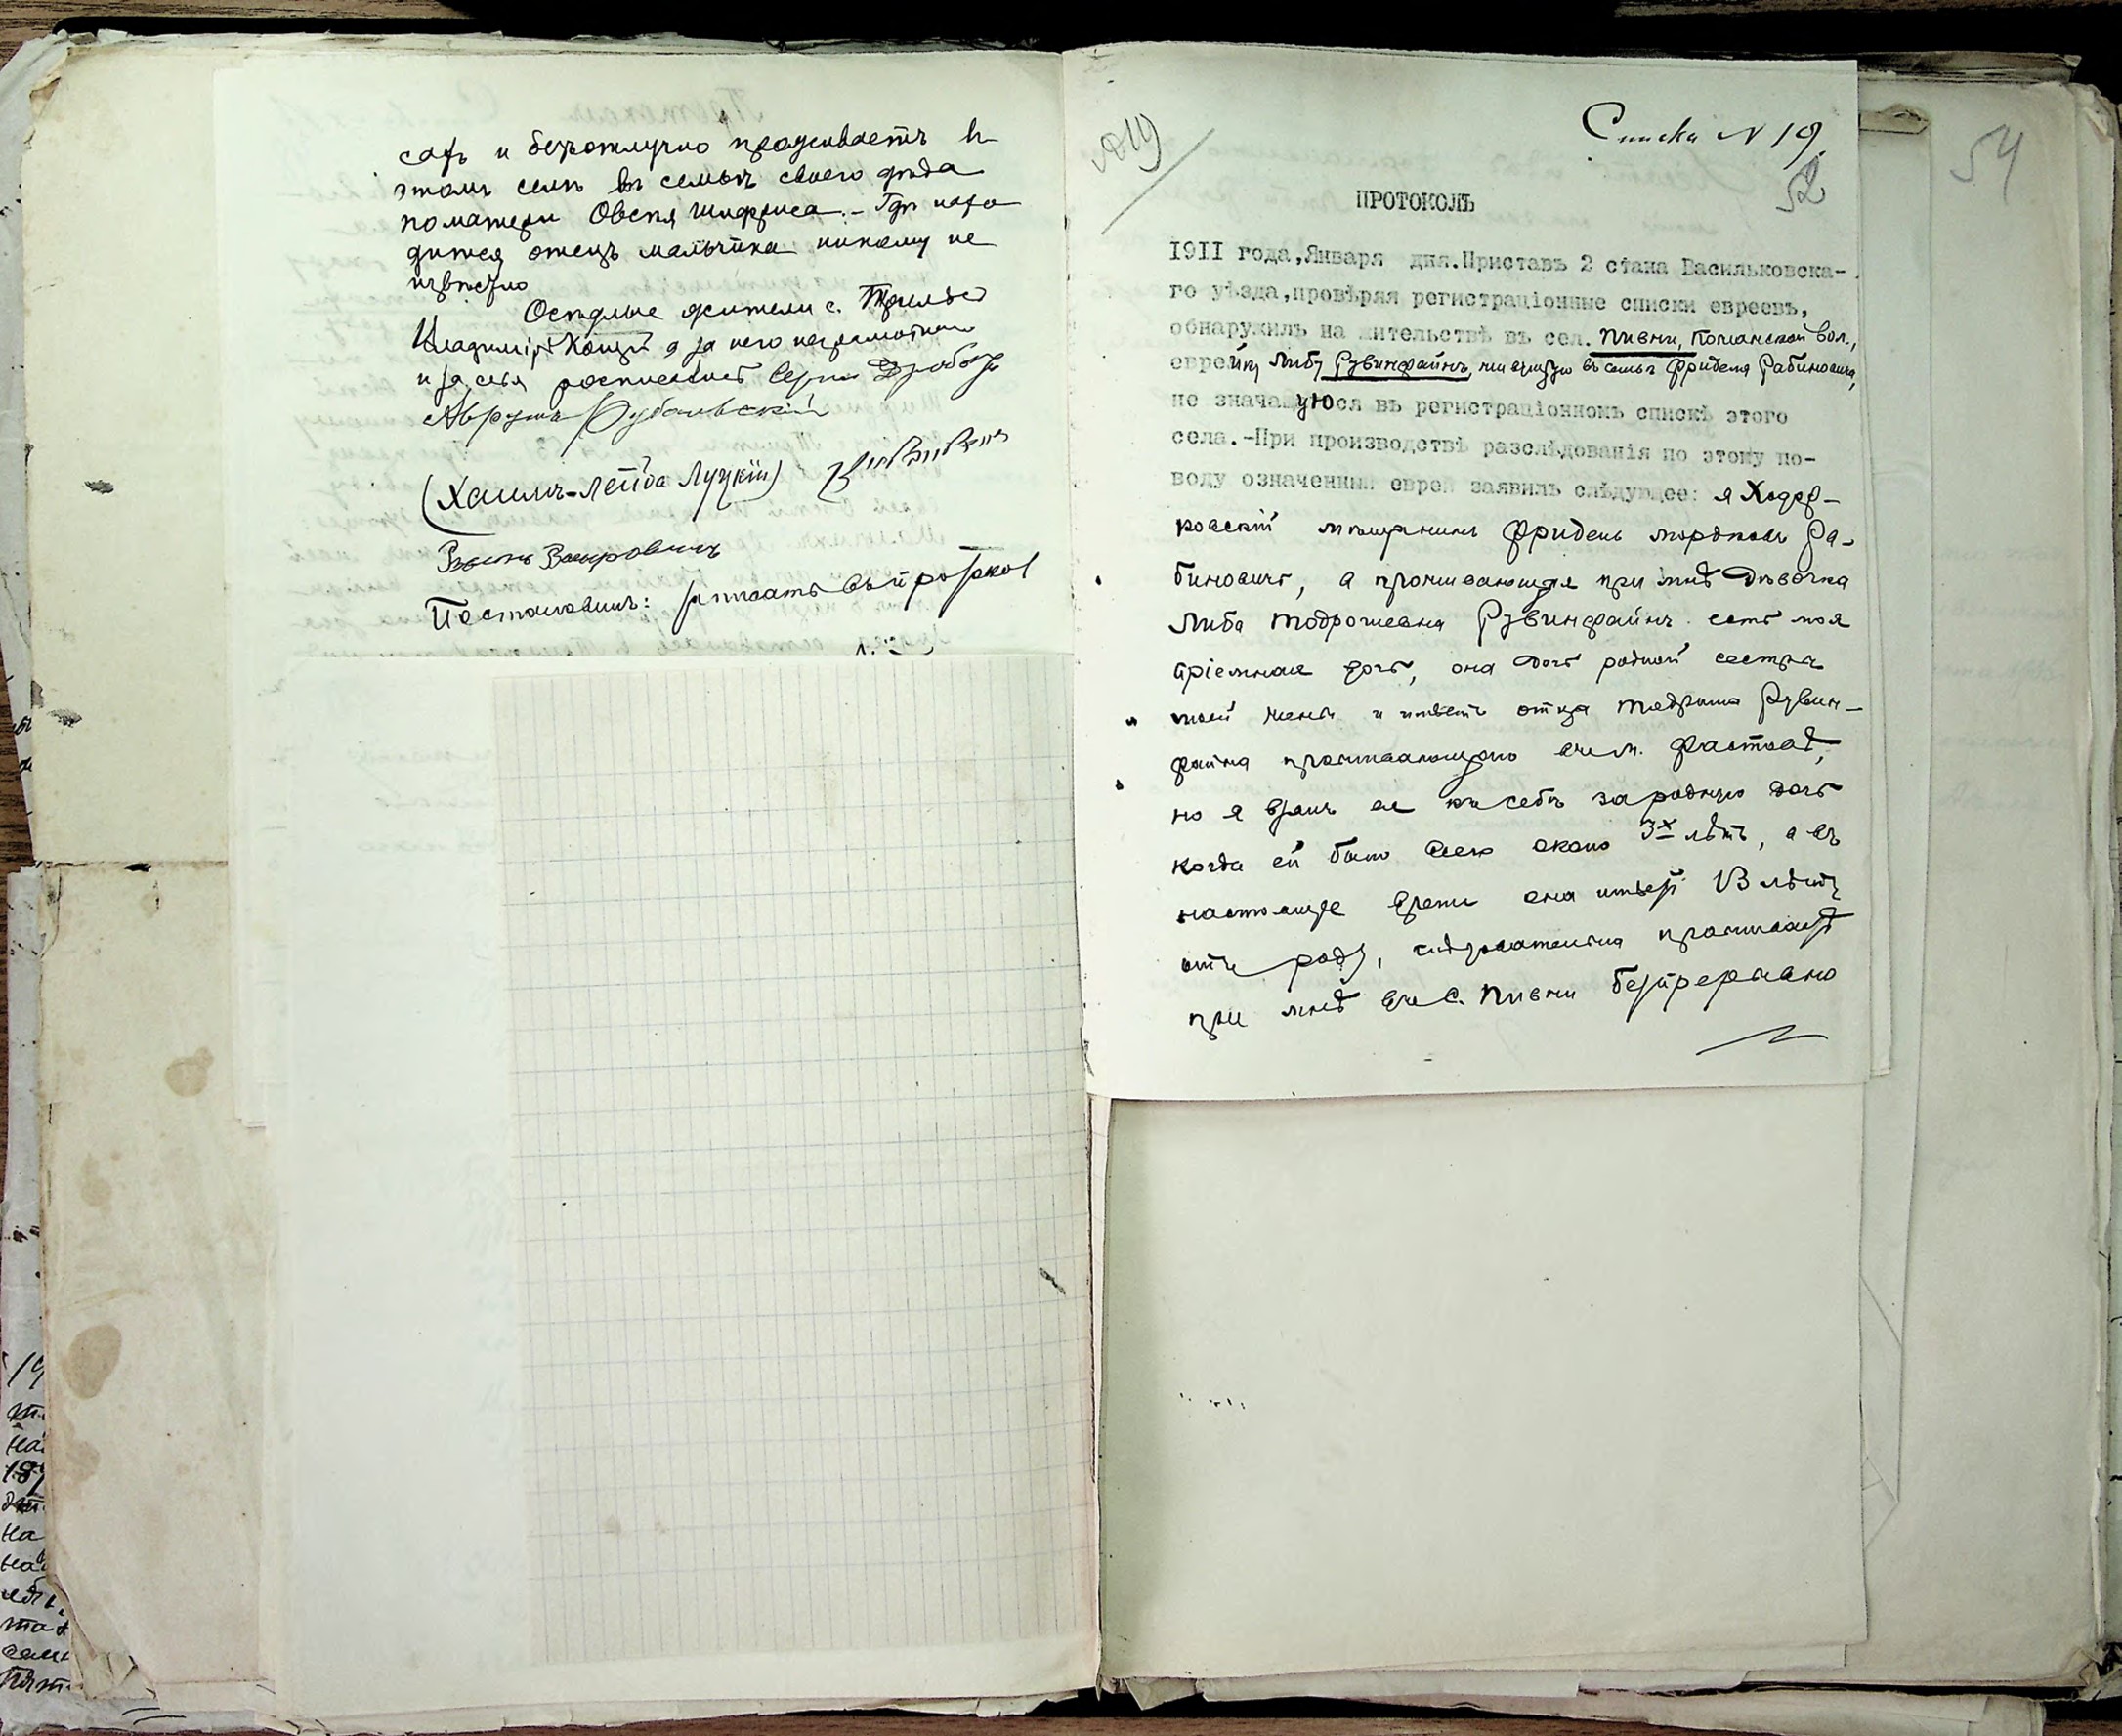 сахъ и безотлучно проживаетъ въ
этомъ селѣ въ семьѣ своего дѣда
по матери Овсѣя Шифриса. - Гдѣ нахо
дится отецъ мальчика никому не
извѣстно
Осѣдлые жители с.
Владиміръ а за него неграмотнаго
и за себя росписался
Аврумъ
(Хаимъ-Лейба Луцкій)
Постановилъ: записать въ протоколъ
№19
Списка N 19.
52
54
ПРОТОКОЛЪ
1911 года, Января дня. Приставъ 2 стана Васильковска-
го уѣзда, провѣряя регистраціонные списки евреевъ,
обнаружилъ на жительствѣ въ сел. Пивни, вол.,
еврейку Либу Рувинфайнъ, живущую въ семьѣ Фриделя Рабиновича,
не значащуюся въ регистраціонномъ спискѣ этого
села.-При производствѣ разслѣдованія по этому по-
воду означенный еврей заявилъ слѣдующее: я Ходор-
ковскій мѣщанинъ Фридель Мордковъ Ра-
биновичъ, а проживающая при мнѣ дѣвочка
Либа Тодрошевна Рувинфайнъ есть моя
пріемная дочь, она дочь родной сестры
моей жены и имѣетъ отца Тодроша Рувин-
файна проживающаго въ м. Фастовѣ,
но я взялъ ее къ себѣ за родную дочь
когда ей было всего около 3х лѣтъ, а въ
настоящее время она имѣетъ 13 лѣтъ
отъ роду, слѣдовательно проживаетъ
при мнѣ въ с. Пивни безпрерывно